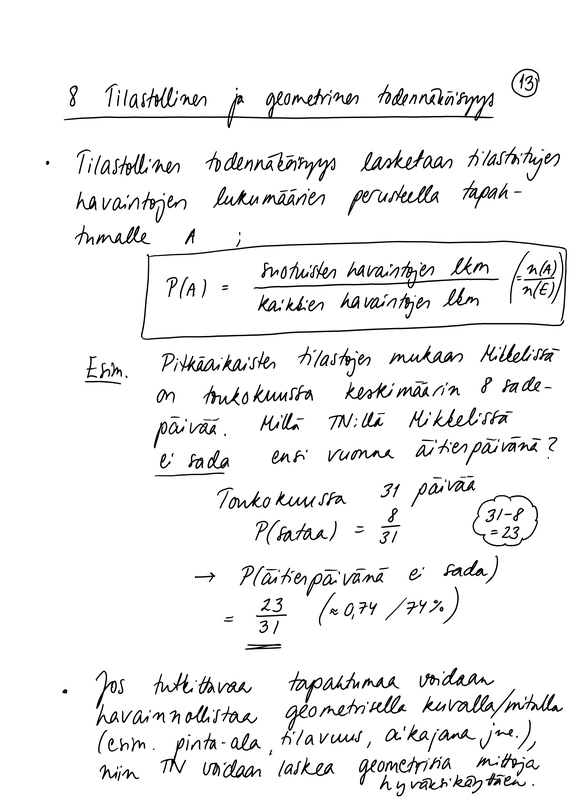 13
8 Tilastollinen ja geometrinen todennäköisyys
• Tilastollinen todennäköisyys lasketaan tilastoitujen
havaintojen lukumäärien perusteella tapah-
tumalle A ;
P(A) = suotuisten havaintojen lkm / kaikkien havaintojen lkm (= n(A)/n(E))
Esim. Pitkäaikaisten tilastojen mukaan Mikkelissä
on toukokuussa keskimäärin 8 sade-
päivää. Millä TN:llä Mikkelissä
ei sada ensi vuonna äitienpäivänä?
Toukokuussa 31 päivää
P(sataa) = 8/31
31-8
= 23
→ P(äitienpäivänä ei sada)
= 23/31 (≈ 0,74 / 74%)
• Jos tutkittavaa tapahtumaa voidaan
havainnollistaa geometrisella kuvalla/mitalla
(esim. pinta-ala, tilavuus, aikajana jne.),
niin TN voidaan laskea geometrisia mittoja
hyväksikäyttäen.